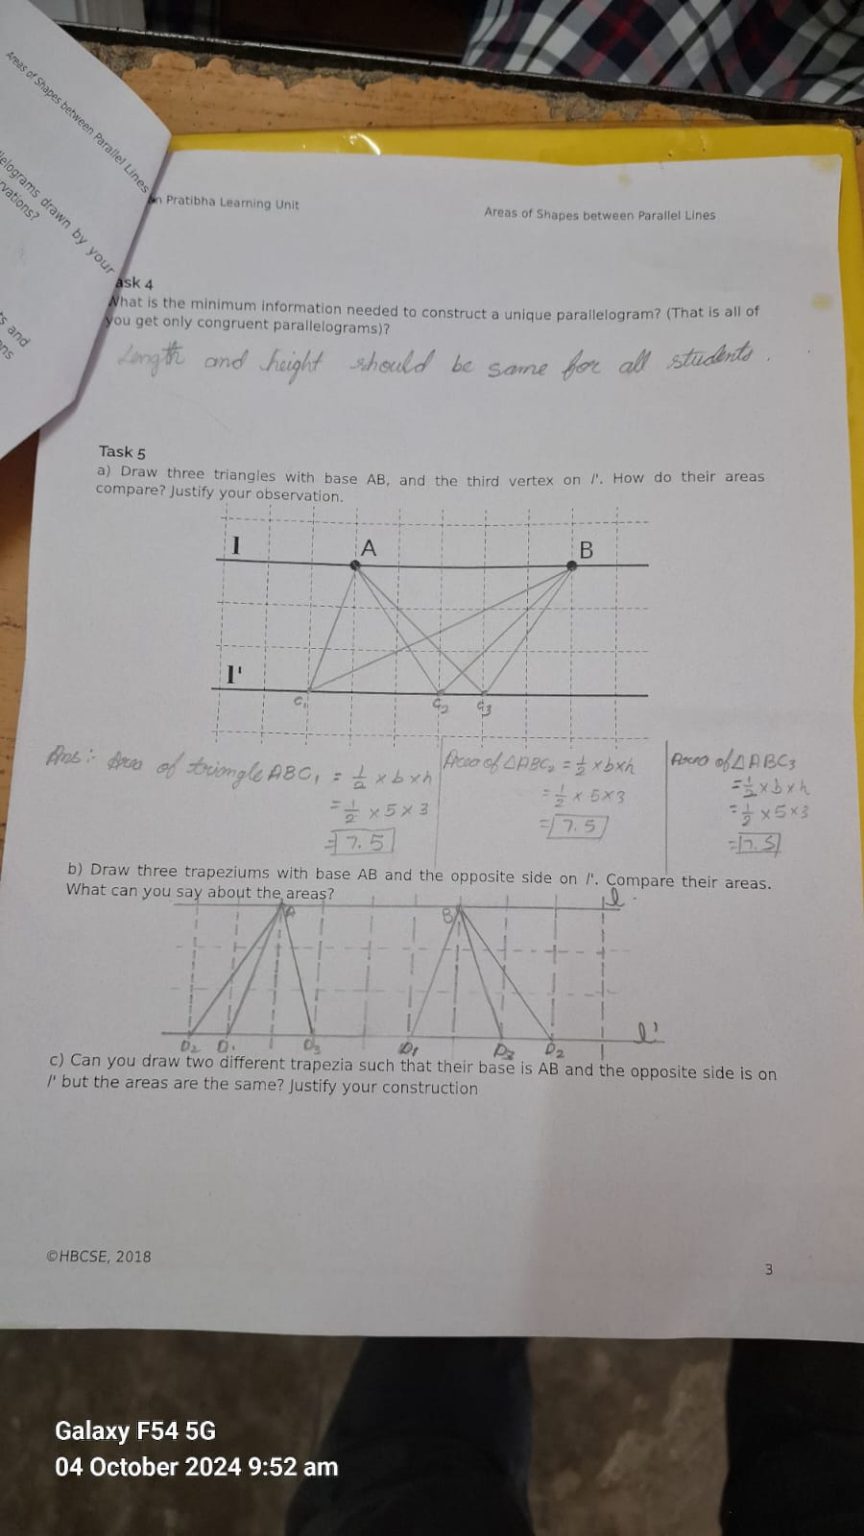 Areas of Shapes between Parallel Lines
elograms drawn by your
rvations?
ts and
ons
n Pratibha Learning Unit
Areas of Shapes between Parallel Lines
ask 4
What is the minimum information needed to construct a unique parallelogram? (That is all of
you get only congruent parallelograms)?
Length and height should be same for all students.
Task 5
a) Draw three triangles with base AB, and the third vertex on l'. How do their areas
compare? Justify your observation.
l A B
l'
C₁ C₂ C₃
Ans :- Area of triangle ABC₁ = 1/2 x b x h
= 1/2 x 5 x 3
= 7.5
Area of △ABC₂ = 1/2 x b x h
= 1/2 x 5 x 3
= 7.5
Area of △ABC₃
= 1/2 x b x h
= 1/2 x 5 x 3
= 7.5
b) Draw three trapeziums with base AB and the opposite side on l'. Compare their areas.
What can you say about the areas?
A B l
D₂ D₁ D₃ D₁ D₃ D₂ l'
c) Can you draw two different trapezia such that their base is AB and the opposite side is on
l' but the areas are the same? Justify your construction
©HBCSE, 2018
3
Galaxy F54 5G
04 October 2024 9:52 am